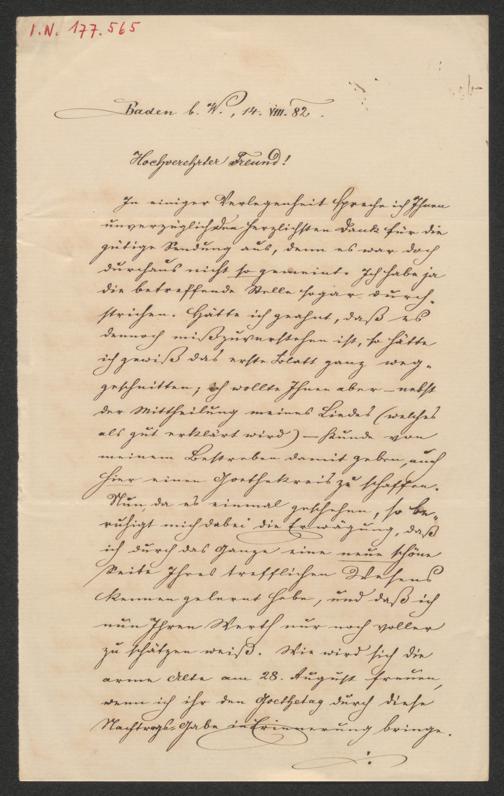 I.N. 177.565
Baden b. W., 14. VIII. 82.
Hochverehrter Freund!
In einiger Verlegenheit spreche ich Ihnen
unverzüglich den herzlichsten Dank für die
gütige Sendung aus, denn es war doch
durchaus nicht so gemeint. Ich habe ja
die betreffende Stelle sogar durch-
strichen. Hätte ich geahnt, daß es
dennoch mißzuverstehen ist, so hätte
ich gewiß das erste Blatt ganz weg-
geschnitten; ich wollte Ihnen aber – nebst
der Mittheilung meines Liedes (welches
als gut erklärt wird) – Kunde von
meinem Bestreben damit geben, auch
hier einen Goethekreis zu schaffen.
Nun, da es einmal geschehen, so be-
ruhigt mich dabei die Erwägung, daß
ich durch das Ganze eine neue schöne
Seite Ihres trefflichen Wesens
kennen gelernt habe, und daß ich
nun Ihren Werth nur noch voller
zu schätzen weiß. Wie wird sich die
arme Alte am 28. August freuen,
wenn ich ihr den Goethetag durch diese
Nachtrags-Gabe in Erinnerung bringe.